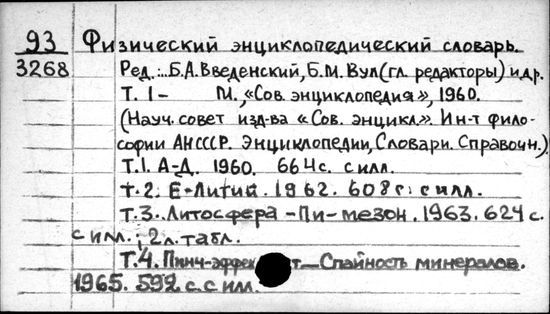 93 Физический энциклопедический словарь.
3268 Ред.: Б.А. Введенский, Б.М. Вул (гл. редакторы) и др.
Т. 1- М., «Сов. энциклопедия», 1960.
(Науч. совет изд-ва «Сов. энцикл.». Ин-т фило-
софии АНСССР. Энциклопедии, Словари. Справочн.)
Т.1. А-Д. 1960. 664 с. с илл.
т.2. Е-Литий. 1962. 608 с. с илл.
Т.3. Литосфера - Пи-мезон. 1963. 624 с.
с илл.; 2 л. табл.
Т.4. Пинч-эффект - Спайность минералов.
1965. 592 с. с илл.